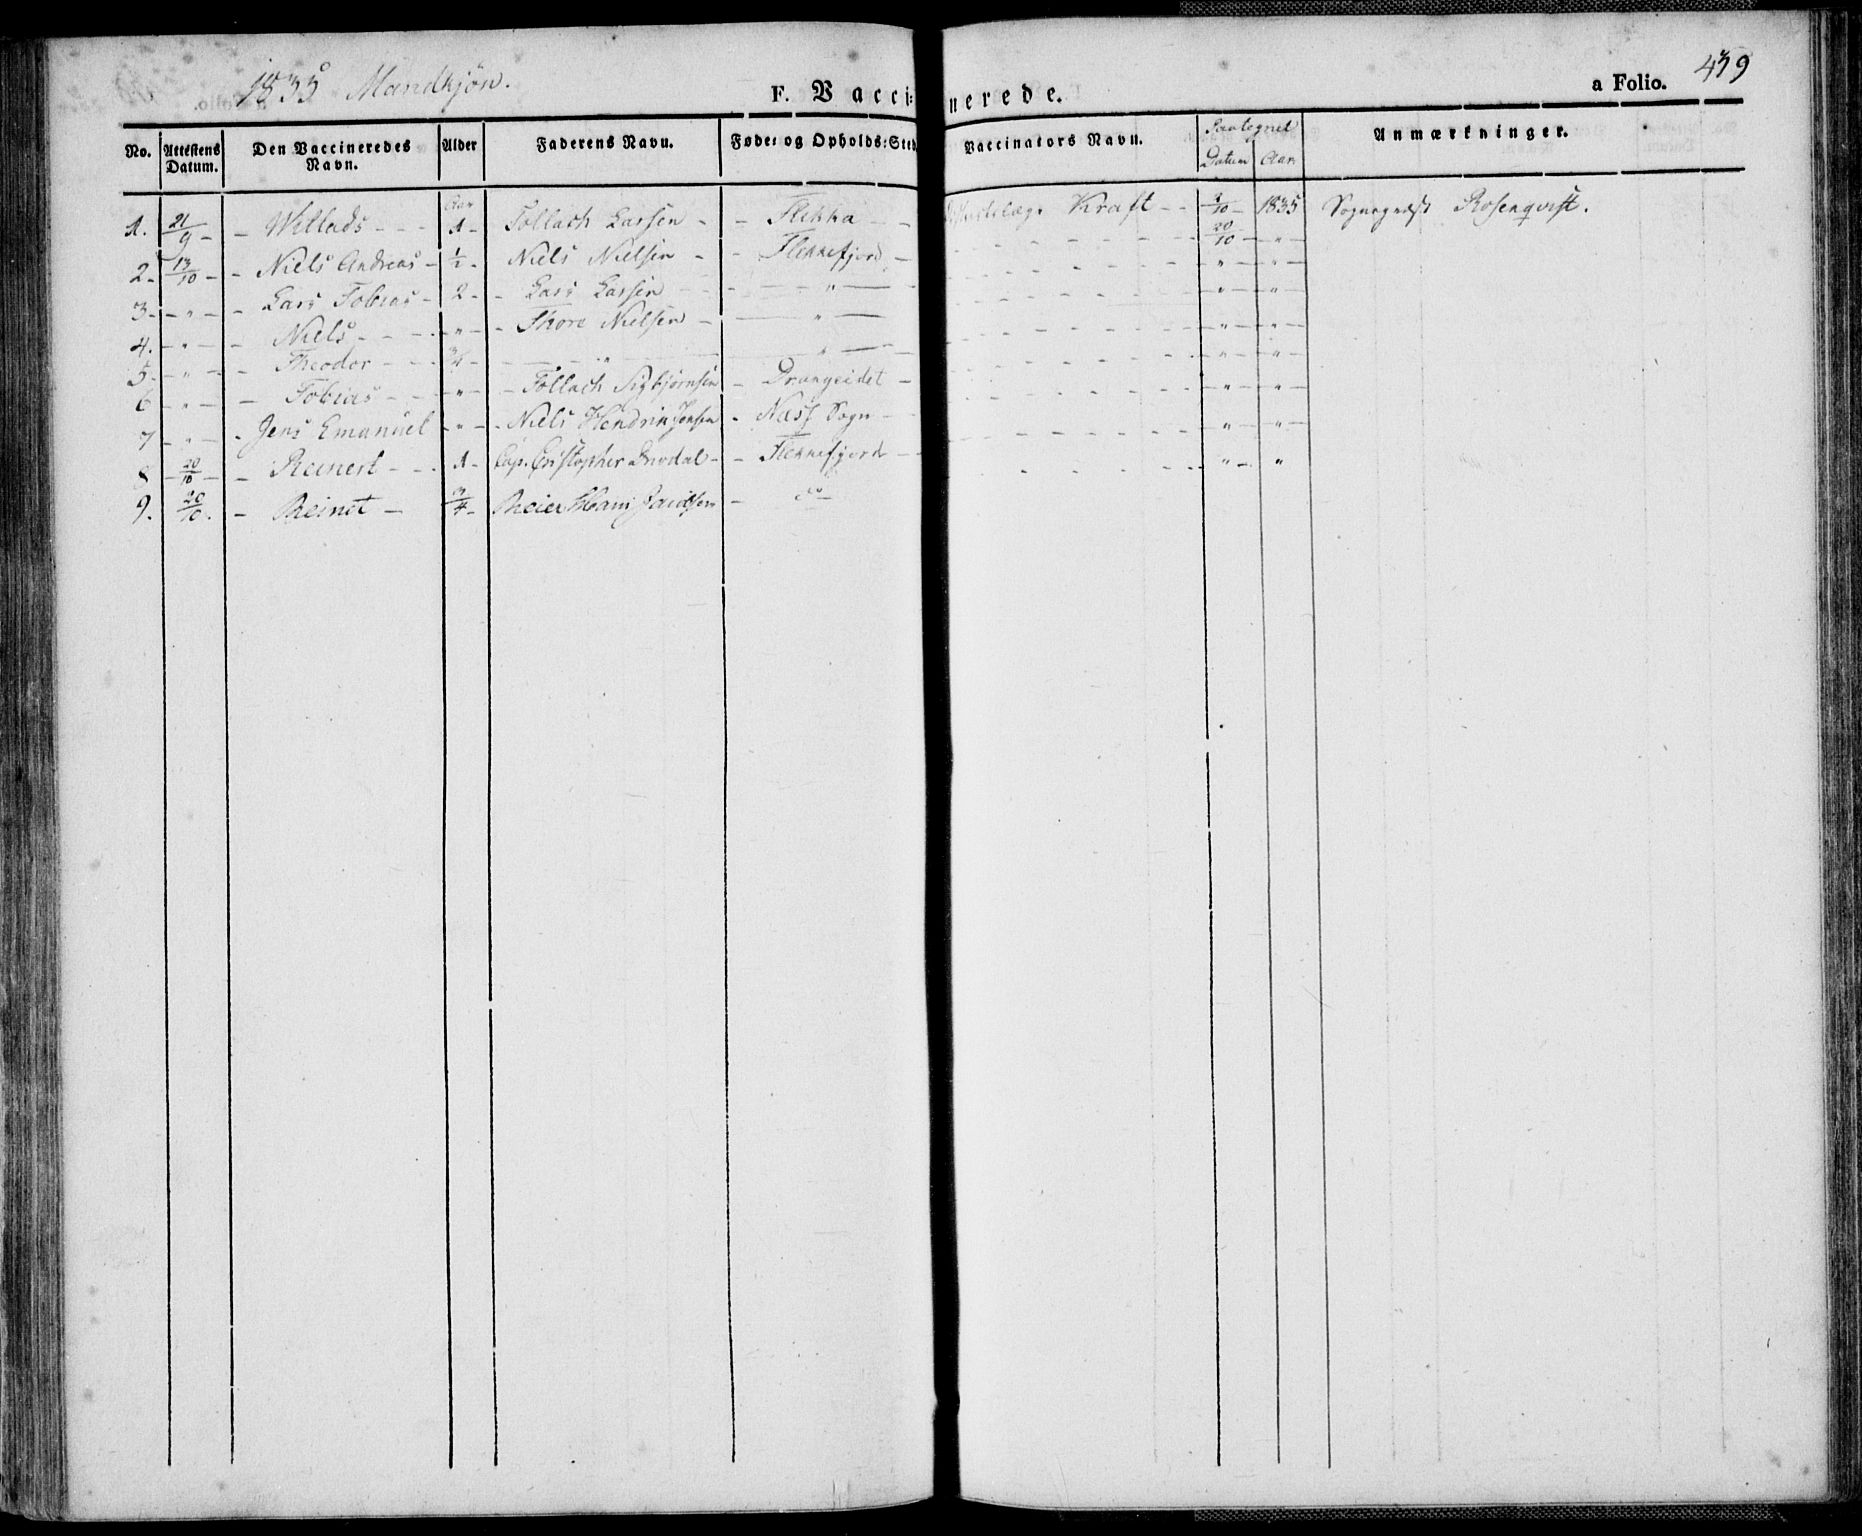 1835 Mandkjøn.
F. Vaccinerede.
a Folio. 439
No. Attestens Datum. Den Vaccineredes Navn. Alder Faderens Navn. Føde- og Opholds-Sted Vaccinators Navn. Datum Aar Anmærkninger.
Aar
1. 21/9 - - Willads - - - 1 - Tollach Larsen - - Flekka - - Kraft - - 2/10 - 1835 Rosenqvist.
2. 13/10 - - Niels Andreas - 1/2 - Niels Nielsen - - Flekkefjord - - - - - 20/10 - " -
3. - " - - Lars Tobias - 2 - - Lars Larsen - - - " - - - - - " - - " -
4. - " - - Niels - - - - " - - Thore Nielsen - - " - - - - - " - - " -
5. - " - - Theodor - - - 3/4 - - " - - " - - - - - " - - " -
6 - " - - Tobias - - - " - - Tollach Sigbjørnsen - Drangeidet - - - - - " - - " -
7 - " - - Jens Emanuel - " - - Niels Hendrik Jensen - Næss Sogn - - - - - " - - " -
8 - 20/10 - - Reinert - - - 1 - Cap. Cristopher - - Flekkefjord - - - - - " - - "
9. 20/10. - Reinert - 3/4 - - do -